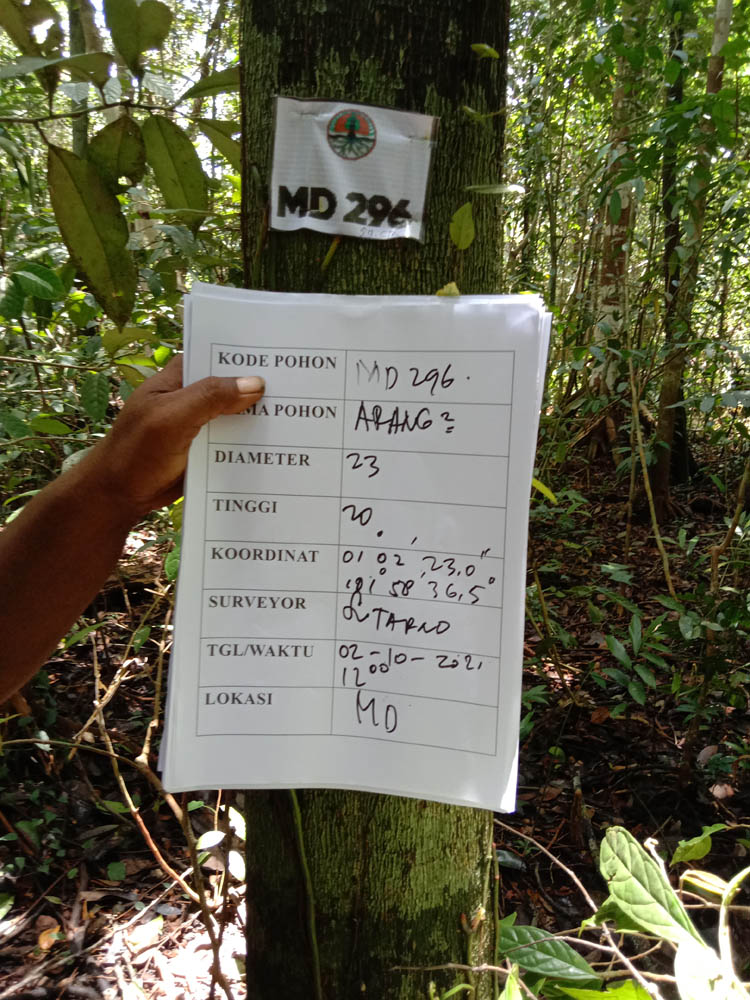 MD 296
KODE POHON MD 296.
MA POHON ARANG2
DIAMETER 23
TINGGI 20
KOORDINAT 01 02 23,0"
58 36,5°
SURVEYOR
TGL/WAKTU 02-10-2021
12 00
LOKASI MD